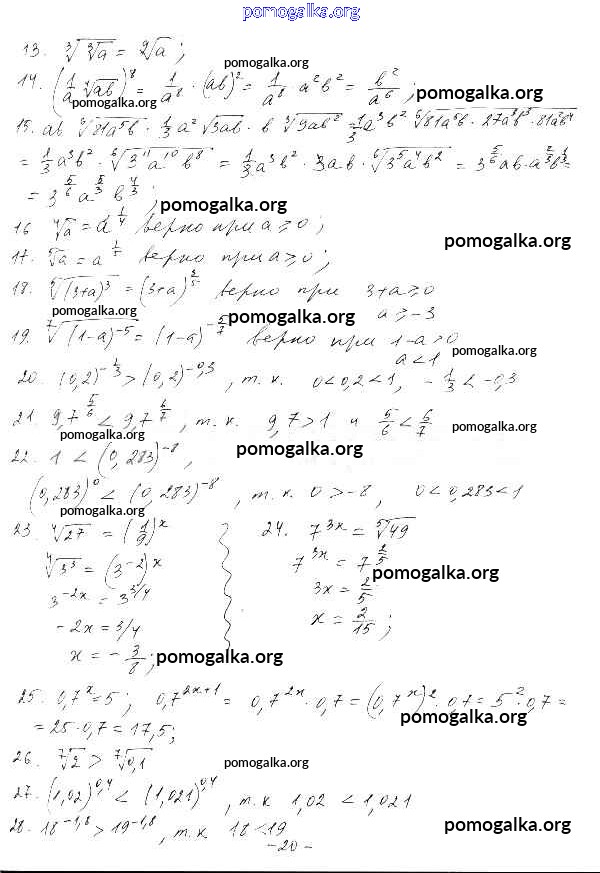 pomogalka.org
13. ∛(∛a) = ⁹√a ;
pomogalka.org
14. (1/a ⁴√ab)⁸ = 1/a⁸ · (ab)² = 1/a⁸ a²b² = b²/a⁶ ;
pomogalka.org
pomogalka.org
15. ab ⁶√81a⁵b · 1/3 a² √3ab · b ∛9ab² = 1/3 a³b²
= 1/3 a³b² · ⁶√3¹¹a¹⁰b⁸ = 1/3 a³b² · 3ab · ⁶√3⁵a⁴b² =
pomogalka.org
16 ⁴√a = a^(1/4) верно при a ≥ 0 ;
pomogalka.org
17. верно при a ≥ 0 ;
pomogalka.org
18. верно при 3+a ≥ 0
a ≥ -3
pomogalka.org
pomogalka.org
19. ⁷√(1-a)⁻⁵ = (1-a)^(-5/7) верно при 1-a > 0
a < 1
pomogalka.org
20. (0,2)^(-1/3) > (0,2)^(-0,3) , т.к. 0<0,2<1, -1/3 < -0,3
pomogalka.org
21. 9,7^(5/6) < 9,7^(6/7) , т.к. 9,7 > 1 и 5/6 < 6/7
pomogalka.org
pomogalka.org
pomogalka.org
22. 1 < (0,283)⁻⁸ ,
(0,283)⁰ < (0,283)⁻⁸ , т.к. 0 > -8 , 0 < 0,283 < 1
pomogalka.org
23. ⁴√27 = (1/9)^x
⁴√3³ = (3⁻²)^x
3^(-2x) = 3^(3/4)
-2x = 3/4
x = - 3/8 ;
pomogalka.org
24. 7^(3x) = ⁵√49
7^(3x) = 7^(2/5)
pomogalka.org
3x = 2/5
x = 2/15 ;
25. 0,7^x = 5 ; 0,7^(2x+1) = 0,7^(2x) · 0,7 = (0,7^x)² · 0,7 = 5² · 0,7 =
pomogalka.org
= 25 · 0,7 = 17,5 ;
26. ⁷√2 > ⁷√0,1
pomogalka.org
27. (1,02)^(0,4) < (1,021)^(0,4) , т.к 1,02 < 1,021
28. 18^(-1,8) > 19^(-1,8) , т.к. 18 < 19
pomogalka.org
-20-